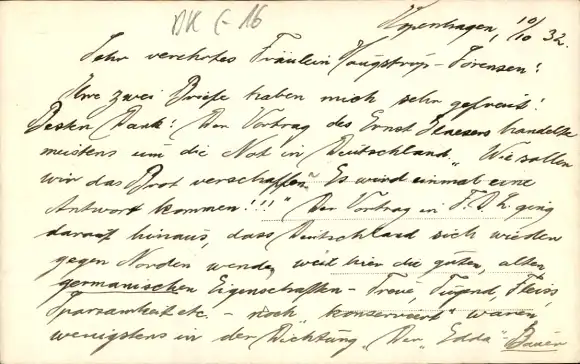 DK C-16
Kopenhagen, 10/10 32.
Sehr verehrtes Fräulein Haugstrup-Sörensen!
Ihre zwei Briefe haben mich sehr gefreut!
Besten Dank! Der Vortrag des Ernst Glaesers handelte
meistens um die Not in Deutschland. „Wie sollen
wir das Brot verschaffen." Es wird einmal eine
Antwort kommen!!!" Der Vortrag in F.D.L. ging
darauf hinaus, dass Deutschland sich wieder
gegen Norden wende, weil hier die guten, alten
germanischen Eigenschaften - Treue, Tugend, Fleiss
Sparsamkeit etc. - noch „konserviert" waren
wenigstens in der Dichtung „Der „Edda"- Bauer